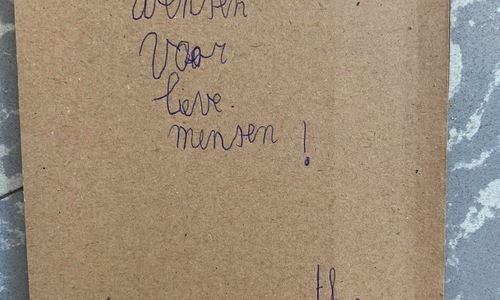 wensen
voor
lieve
mensen !